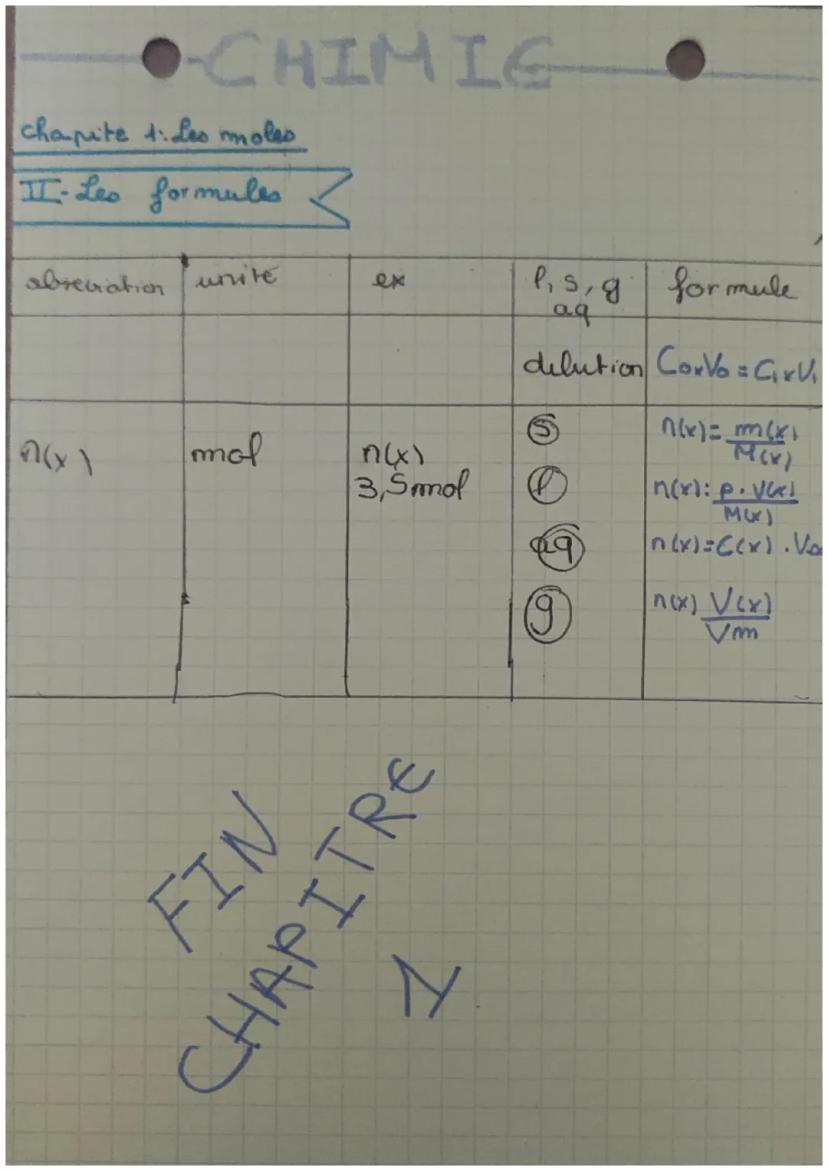 CHIMIE
chapite 1: Les moles
II- Les formules
abreviation unité ex l, s, g aq formule
dilution C0xV0 = C1xV1
n(x) mol n(x) 3,5mol
s n(x) = m(x)/M(x)
l n(x): ρ.V(x)/M(x)
aq n(x)=C(x).V
g n(x) V(x)/Vm
FIN
CHAPITRE
1